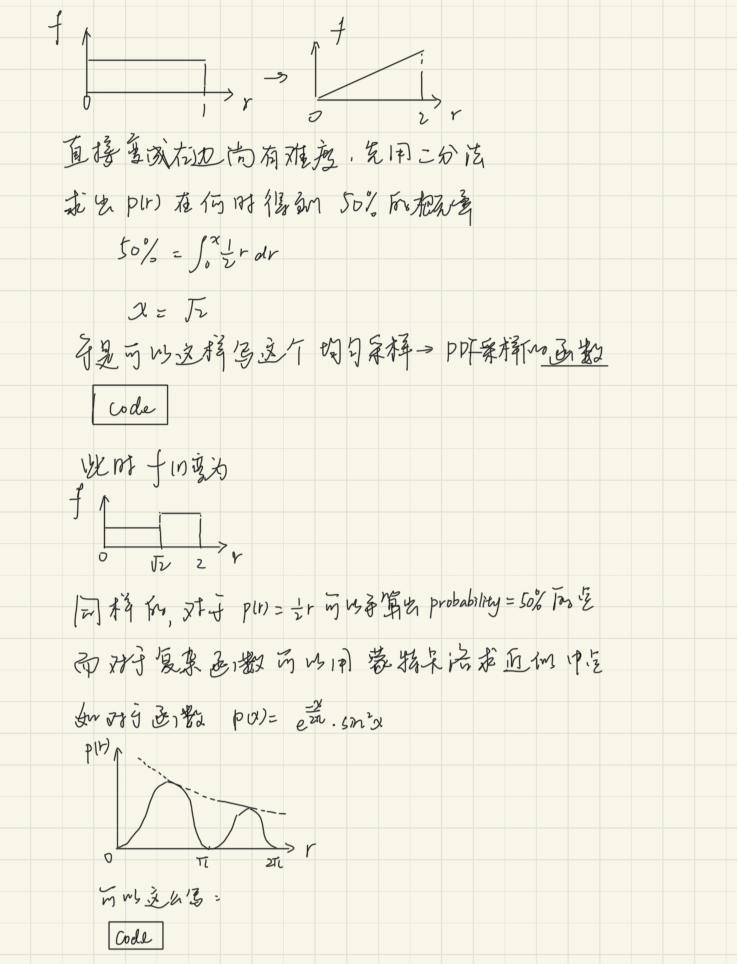 f f
0 1 r → 0 2 r
直接变成右边尚有难度,先用二分法
求出 p(r) 在何时得到 50% 的概率
50% = ∫₀ˣ ½ r dr
x = √2
于是可以这样写这个 均匀采样→ PDF采样的函数
code
此时 f(r)变为
f
0 √2 2 r
同样的, 对于 p(r) = ½r 可以手算出 probability = 50% 的点
而对于复杂函数可以用 蒙特卡洛求近似中点
如对于函数 p(x) = e^(-x/2π) · sin²x
p(r)
0 π 2π r
可以这么写:
code